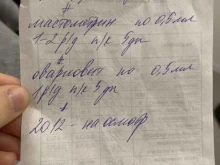 мастометрин по 0,5 мл
1-2 р/д п/к 5 дн
*
овариовит по 0,5 мл
1 р/д п/к 5 дн
*
20.12 - на осмотр